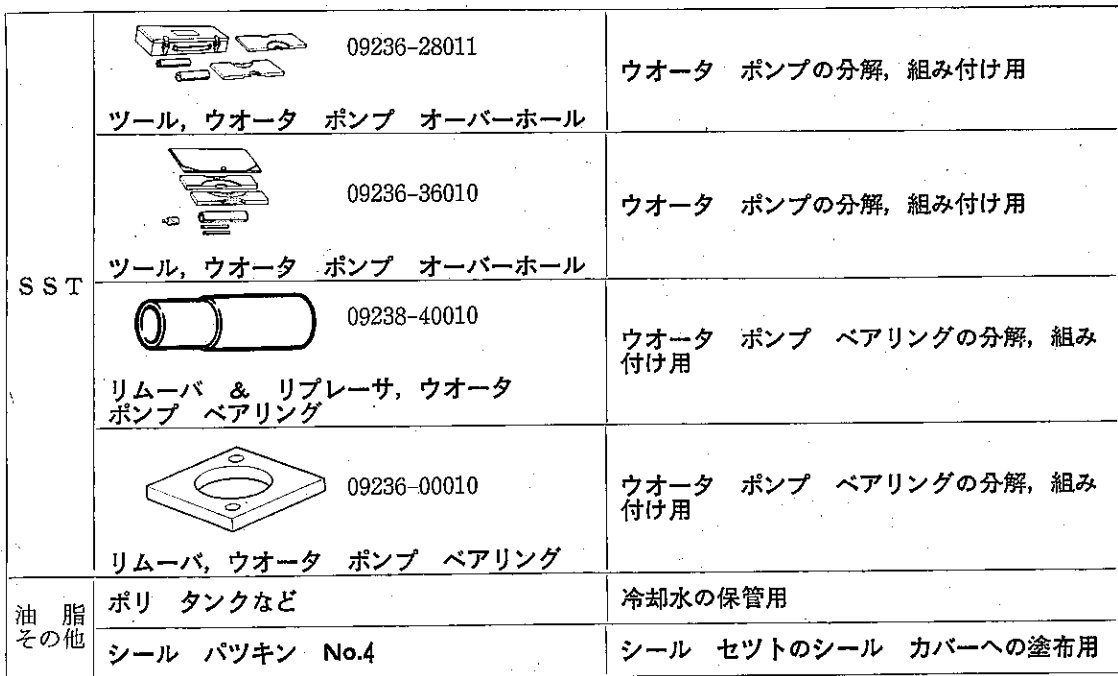 09236-28011
ツール, ウオータ ポンプ オーバーホール
ウオータ ポンプの分解, 組み付け用
09236-36010
ツール, ウオータ ポンプ オーバーホール
ウオータ ポンプの分解, 組み付け用
SST
09238-40010
リムーバ & リプレーサ, ウオータ
ポンプ ベアリング
ウオータ ポンプ ベアリングの分解, 組み
付け用
09236-00010
リムーバ, ウオータ ポンプ ベアリング
ウオータ ポンプ ベアリングの分解, 組み
付け用
油 脂
その他
ポリ タンクなど
冷却水の保管用
シール パツキン No.4
シール セツトのシール カバーへの塗布用